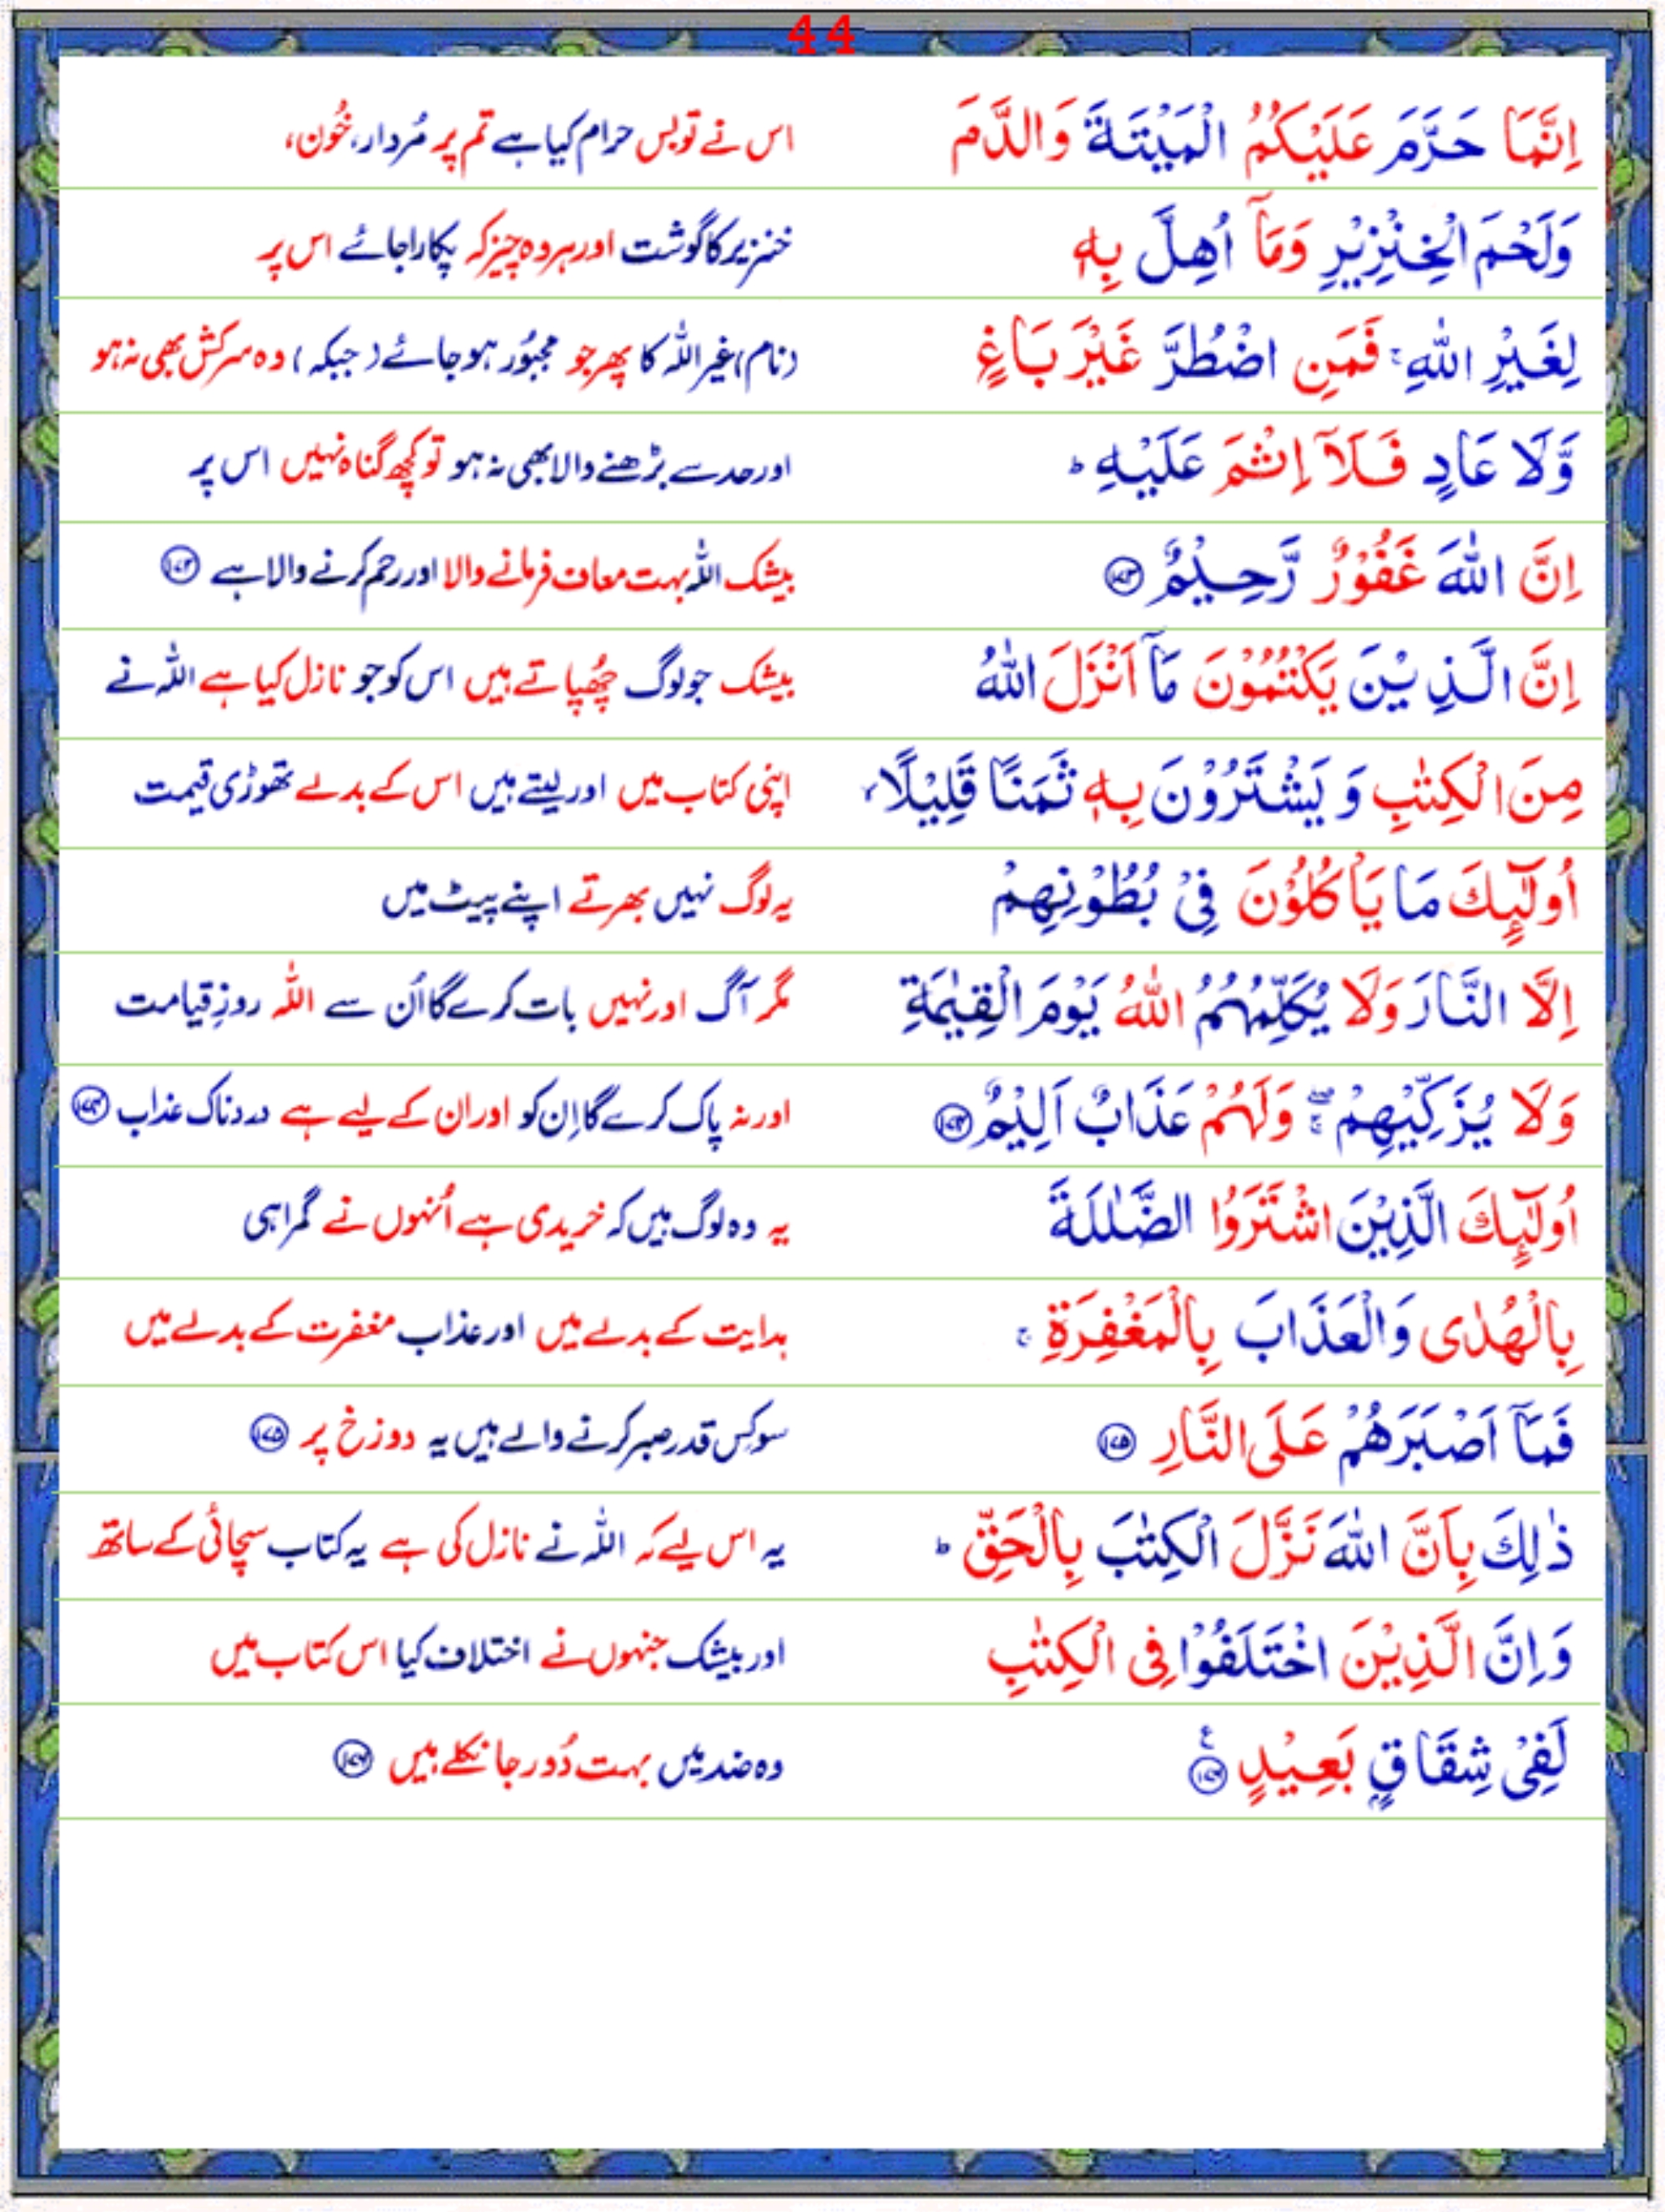 44
اِنَّمَا حَرَّمَ عَلَيْكُمُ الْمَيْتَةَ وَالدَّمَ اس نے تو بس حرام کیا ہے تم پر مُردار، خُون،
وَلَحْمَ الْخِنْزِيْرِ وَمَآ اُهِلَّ بِهٖ خنزیر کا گوشت اور ہر وہ چیز کہ پکارا جائے اس پر
لِغَيْرِ اللّٰهِ ۚ فَمَنِ اضْطُرَّ غَيْرَ بَاغٍ (نام) غیر اللہ کا پھر جو مجبُور ہو جائے (جبکہ) وہ سرکش بھی نہ ہو
وَّلَا عَادٍ فَلَآ اِثْمَ عَلَيْهِ ؕ اور حد سے بڑھنے والا بھی نہ ہو تو کچھ گناہ نہیں اس پر
اِنَّ اللّٰهَ غَفُوْرٌ رَّحِيْمٌ ۝۱۷۳ بیشک اللہ بہت معاف فرمانے والا اور رحم کرنے والا ہے ۝۱۷۳
اِنَّ الَّذِيْنَ يَكْتُمُوْنَ مَآ اَنْزَلَ اللّٰهُ بیشک جو لوگ چھُپاتے ہیں اس کو جو نازل کیا ہے اللہ نے
مِنَ الْكِتٰبِ وَ يَشْتَرُوْنَ بِهٖ ثَمَنًا قَلِيْلًا ۙ اپنی کتاب میں اور لیتے ہیں اس کے بدلے تھوڑی قیمت
اُولٰٓئِكَ مَا يَاْكُلُوْنَ فِيْ بُطُوْنِهِمْ یہ لوگ نہیں بھرتے اپنے پیٹ میں
اِلَّا النَّارَ وَلَا يُكَلِّمُهُمُ اللّٰهُ يَوْمَ الْقِيٰمَةِ مگر آگ اور نہیں بات کرے گا اُن سے اللہ روزِ قیامت
وَلَا يُزَكِّيْهِمْ ۖۚ وَلَهُمْ عَذَابٌ اَلِيْمٌ ۝۱۷۴ اور نہ پاک کرے گا اِن کو اور ان کے لیے ہے دردناک عذاب ۝۱۷۴
اُولٰٓئِكَ الَّذِيْنَ اشْتَرَوُا الضَّلٰلَةَ یہ وہ لوگ ہیں کہ خریدی ہے اُنہوں نے گمراہی
بِالْهُدٰى وَالْعَذَابَ بِالْمَغْفِرَةِ ۚ ہدایت کے بدلے میں اور عذاب مغفرت کے بدلے میں
فَمَآ اَصْبَرَهُمْ عَلَى النَّارِ ۝۱۷۵ سو کس قدر صبر کرنے والے ہیں یہ دوزخ پر ۝۱۷۵
ذٰلِكَ بِاَنَّ اللّٰهَ نَزَّلَ الْكِتٰبَ بِالْحَقِّ ؕ یہ اس لیے کہ اللہ نے نازل کی ہے یہ کتاب سچائی کے ساتھ
وَاِنَّ الَّذِيْنَ اخْتَلَفُوْا فِى الْكِتٰبِ اور بیشک جنہوں نے اختلاف کیا اس کتاب میں
لَفِيْ شِقَاقٍۭ بَعِيْدٍ ۝۱۷۶ ع وہ ضد میں بہت دُور جا نکلے ہیں ۝۱۷۶